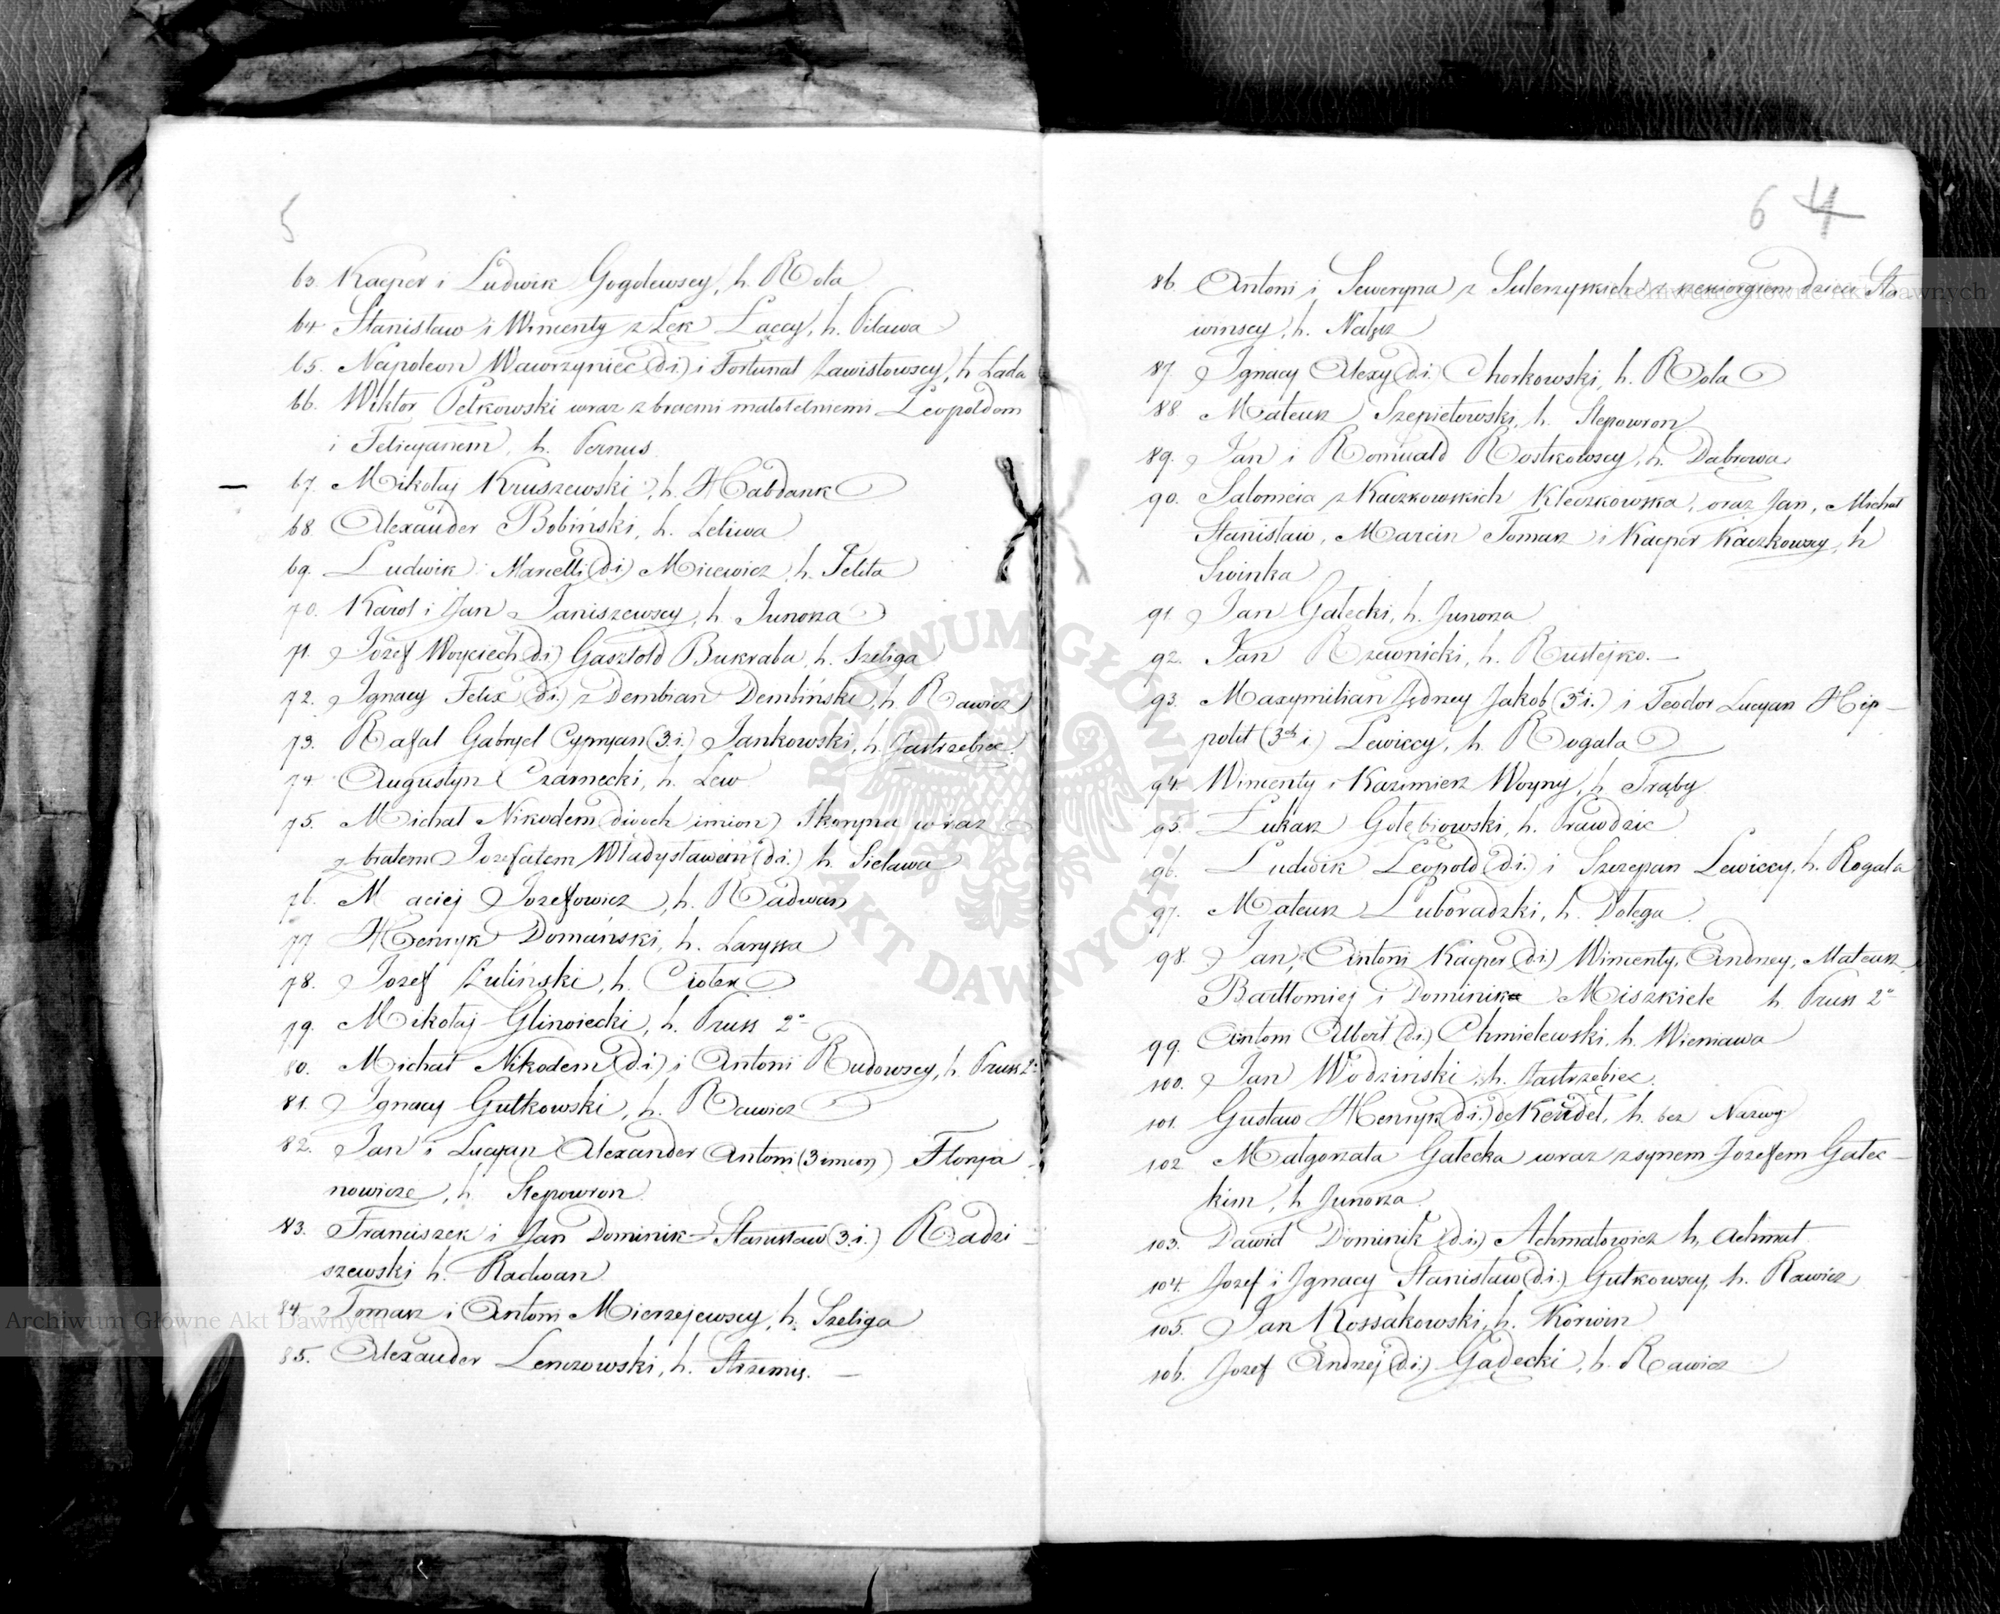 5
63. Kacper i Ludwik Gogolewscy, h. Rola
64 Stanisław i Wincenty z Łęk Łąccy, h. Pilawa
65. Napoleon Wawrzyniec (d.i.) i Fortunat Zawistowscy, h Łada
66. Wiktor Petkowski wraz z braćmi małoletniemi Leopoldem
i Felicyanem, h. Pernus
67. Mikołaj Kruszewski, h. Habdank
68 Alexander Bobiński, h. Leliwa
69. Ludwik Marcelli (d.i) Micewicz, h. Pelita
70. Karol i Jan Janiszewscy, h. Junosza
71. Józef Woyciech (d.i) Gasztold Bukraba, h. Szeliga
72. Ignacy Felix (d.i.) z Dembian Dembiński, h. Rawicz
73. Rafał Gabryel Cypryan (3.i.) Jankowski, h. Jastrzębiec.
74 Augustyn Czarnecki, h. Lew
75. Michał Nikodem (dwoch imion) Skoryna wraz
z bratem Jozefatem Władysławem (d.i.) h. Sielawa
76. Maciej Jozefowicz, h. Radwan
77 Henryk Domański, h. Laryssa
78. Jozef Zuliński, h. Ciołek
79. Mikołaj Glinoiecki, h. Pruss 2º
80. Michał Nikodem (d.i) i Antoni Rudowscy, h. Pruss 2º
81. Ignacy Gutkowski, h. Rawicz
82. Jan i Lucyan Alexander Antoni (3 imion) Florja
nowicze, h. Slepowron
83. Franciszek i Jan Dominik Stanisław (3.i.) Radzi
szewski h. Radwan
84 Tomasz i Antoni Mierzejewscy, h. Szeliga
85. Alexander Lenczowski, h. Strzemię. —
6 4
86 Antoni i Seweryna z Sulerzyskich z dzieci Sła
winscy, h. Nałęcz
87. Ignacy Alexy (d.i.) Chorkowski, h. Rola
88. Mateusz Szepietowski, h. Slepowron
89. Jan i Romuald Rostkowscy, h. Dąbrowa
90. Salomeia z Kaczkowskich Kleczkowska, oraz Jan, Michał
Stanisław, Marcin Tomasz i Kacper Kaczkowscy, h
Swinka
91 Jan Gałecki, h. Junosza
92. Jan Rzewnicki, h. Rustejko. —
93. Maxymilian Jędrzej Jakob (3ch i.) i Teodor Lucyan Hip—
polit (3ch i.) Lewiccy, h. Rogala
94. Wincenty i Kazimierz Woyny, h Trąby
95. Łukasz Gołębiowski, h. Prawdzic
96. Ludwik Leopold (d.i.) i Szczepan Lewiccy, h. Rogala
97. Mateusz Luboradzki, h. Dołęga
98. Jan, Antoni Kacper (d.i.) Wincenty, Andrzey, Mateusz
Bartłomiej i Dominik Miszkiele h. Pruss 2º
99. Antoni Albert (d.i.) Chmielewski, h. Wieniawa
100. Jan Wodziński, h. Jastrzębiec.
101. Gustaw Henryk (d.i.) de Keudel, h. bez Nazwy
102 Małgorzata Gałecka wraz z synem Jozefem Gałec—
kim, h Junosza
103. Dawid Dominik (d.i.) Achmatowicz h, Achmat
104. Jozef i Ignacy Stanisław (d.i.) Gutkowscy, h. Rawicz
105. Jan Kossakowski, h. Korwin
106. Jozef Andrzej (d.i.) Gadecki, h. Rawicz
ARCHIWUM GŁÓWNE AKT DAWNYCH
Archiwum Główne Akt Dawnych
Archiwum Główne Akt Dawnych